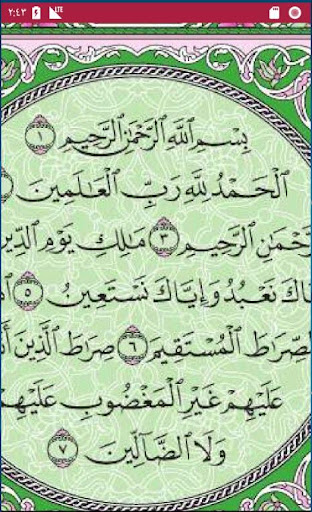 ٢:٤٣ LTE
بِسْمِ ٱللَّهِ ٱلرَّحْمَٰنِ ٱلرَّحِيمِ ١
ٱلْحَمْدُ لِلَّهِ رَبِّ ٱلْعَٰلَمِينَ
ٱلرَّحْمَٰنِ ٱلرَّحِيمِ ٣ مَٰلِكِ يَوْمِ ٱلدِّينِ
إِيَّاكَ نَعْبُدُ وَإِيَّاكَ نَسْتَعِينُ ٥
ٱلصِّرَٰطَ ٱلْمُسْتَقِيمَ ٦ صِرَٰطَ ٱلَّذِينَ
عَلَيْهِمْ غَيْرِ ٱلْمَغْضُوبِ عَلَيْهِمْ
وَلَا ٱلضَّآلِّينَ ٧